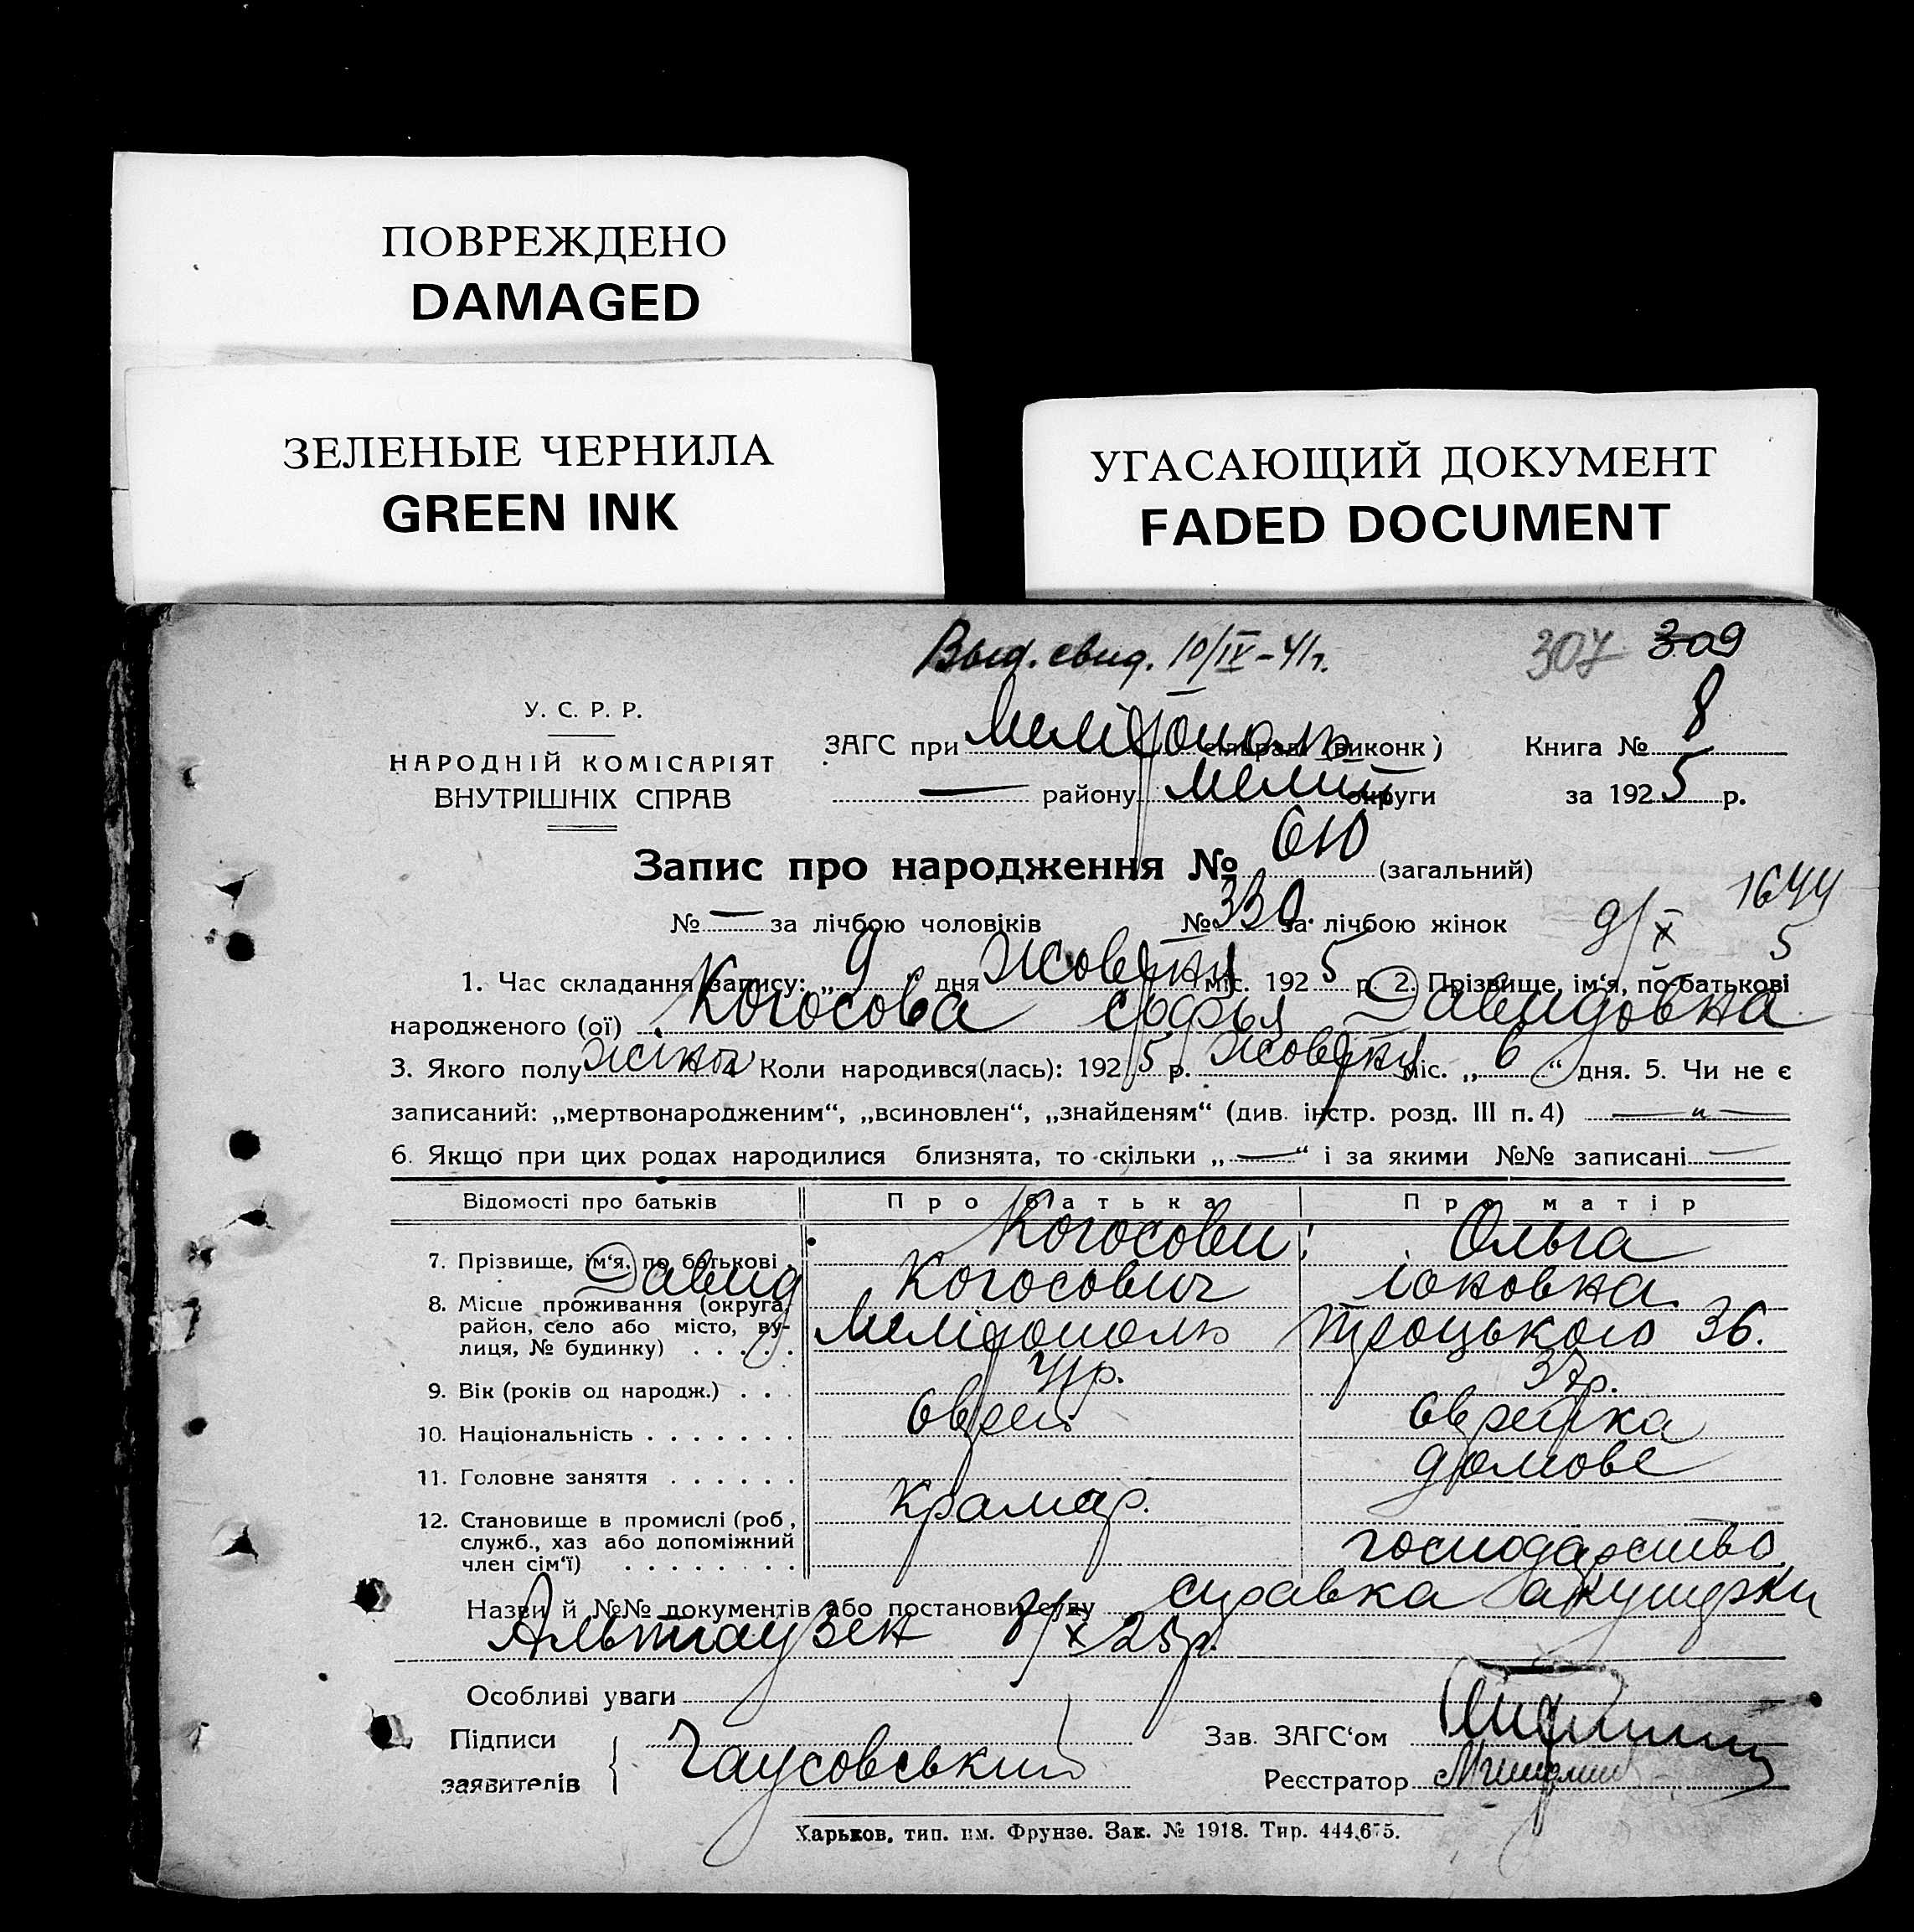 ПОВРЕЖДЕНО
DAMAGED
ЗЕЛЕНЫЕ ЧЕРНИЛА
GREEN INK
УГАСАЮЩИЙ ДОКУМЕНТ
FADED DOCUMENT
Выд. свид. 10/IV-41г. 307 309
У. С. Р. Р.
НАРОДНІЙ КОМІСАРІЯТ
ВНУТРІШНІХ СПРАВ
ЗАГС при Мелітополь сільраді (виконк) Книга № 8
— району Меліт округи за 1925 р.
Запис про народження № 610 (загальний)
№ — за лічбою чоловіків № 330 за лічбою жінок 9/X 5 1644
1. Час складання запису: „ 9 " дня Жовтня міс. 1925 р. 2. Прізвище, ім'я, по-батькові
народженого (ої) Когосова Софья Давидовна
3. Якого полу жіноч Коли народився(лась): 1925 р. Жовтня міс. „ 6 “ дня. 5. Чи не є
записаний: „мертвонародженим“, „всиновлен“, „знайденям“ (див. інстр. розд. III п. 4) — „ —
6. Якщо при цих родах народилися близнята, то скільки „ — “ і за якими №№ записані —
Відомості про батьків Про батька Про матір
7. Прізвище, ім'я, по батькові Когосови: Ольга
Давид Когосович Іоновна
8. Місце проживання (округа, район, село або місто, вулиця, № будинку) . . . . . Мелітополь Троцького 36.
9. Вік (років од народж.) . . . 41р. 37р.
10. Національність . . . . . . . Єврей Єврейка
11. Головне заняття . . . . . . Крамар. домове
12. Становище в промислі (роб., служб., хаз або допоміжний член сім'ї) . . . . . . . . господарство
Назви й №№ документів або постанови суду справка акушерки
Альтгаузен 8/X 25р.
Особливі уваги
Підписи заявителів { Чаусовський
Зав. ЗАГС'ом
Реєстратор
Харьков, тип. им. Фрунзе. Зак. № 1918. Тир. 444.675.